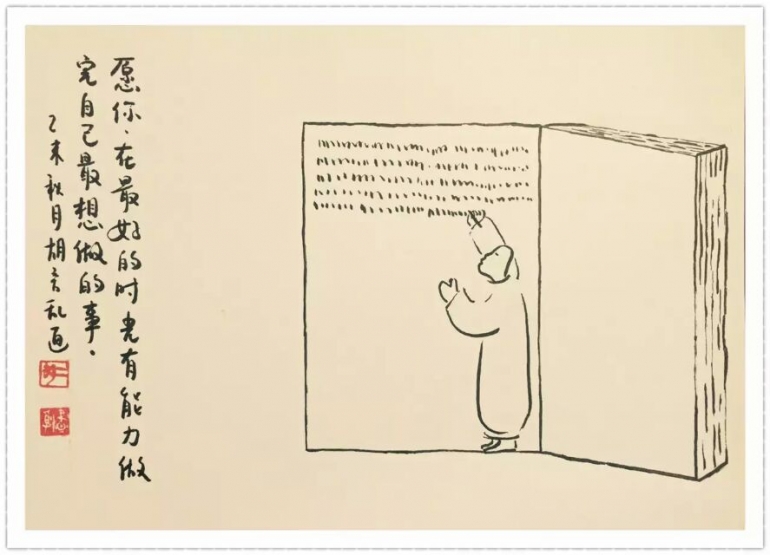 愿你、在最好的时光有能力做
完自己最想做的事。
乙未秋月胡言乱画